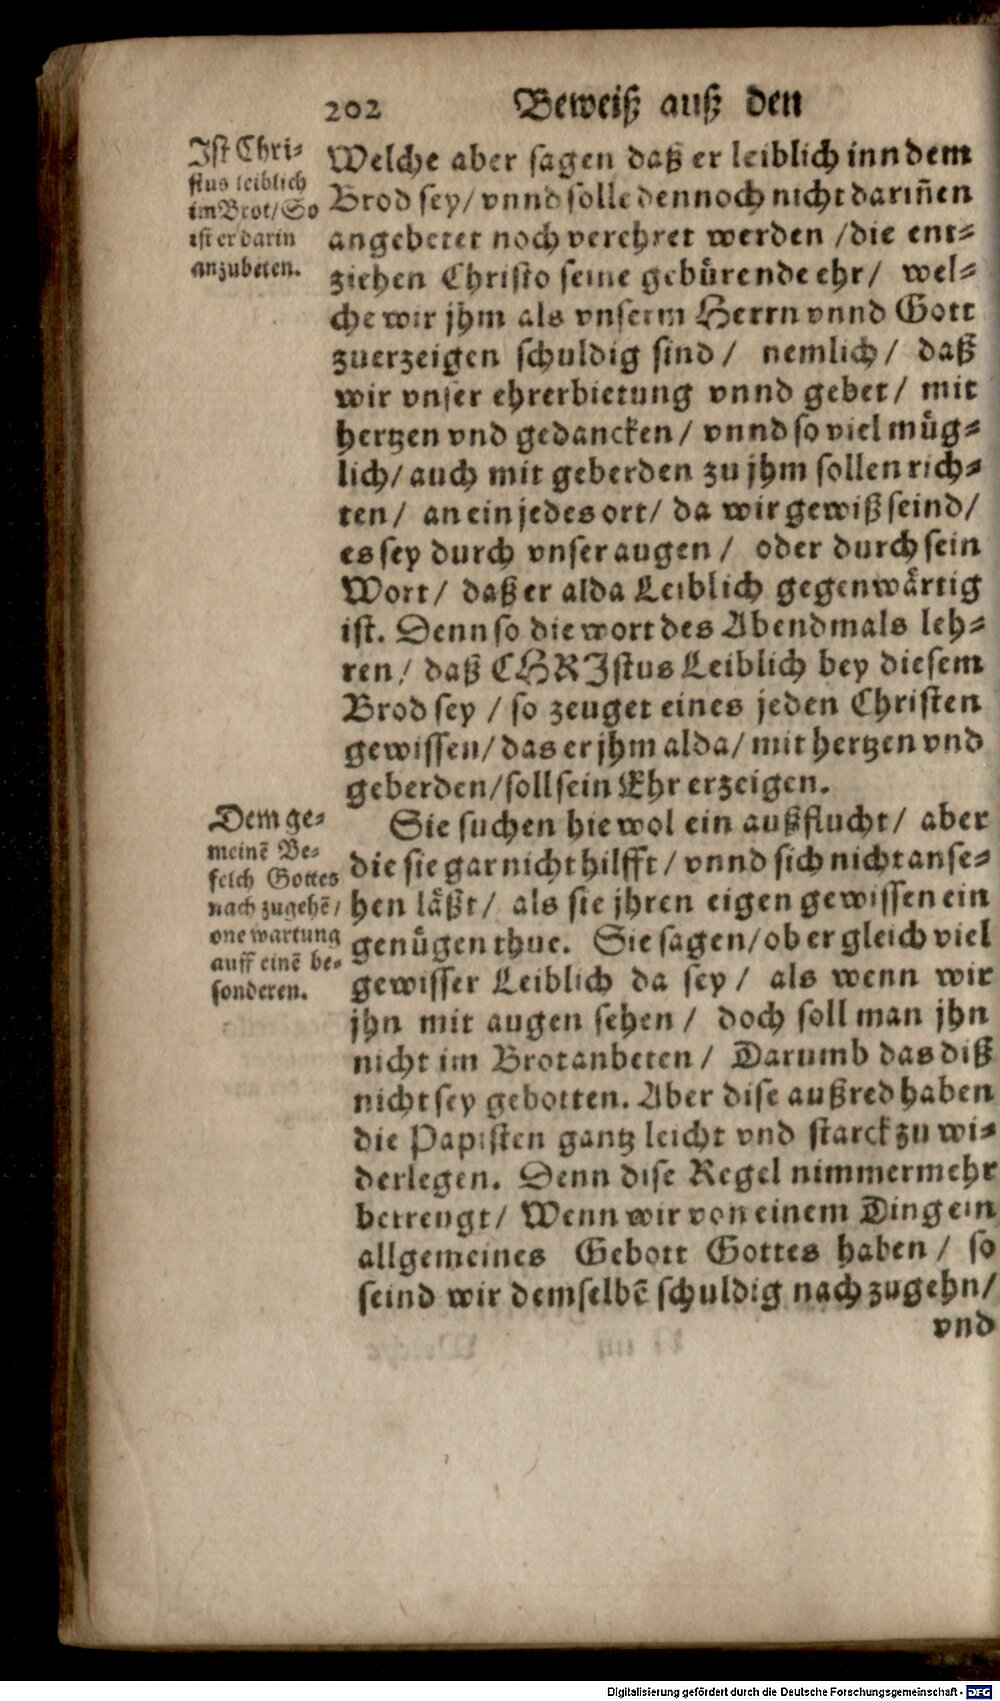 202 Beweiß auß den
Ist Chri⸗
stus leiblich
im Brot/ So
ist er darin
anzubeten.
Welche aber sagen daß er leiblich inn dem
Brod sey/ vnnd solle dennoch nicht dariñen
angebetet noch verehret werden /die ent⸗
ziehen Christo seine gebürende ehr/ wel⸗
che wir jhm als vnserm Herrn vnnd Gott
zuerzeigen schuldig sind/ nemlich/ daß
wir vnser ehrerbietung vnnd gebet/ mit
hertzen vnd gedancken/ vnnd so viel müg⸗
lich/ auch mit geberden zu jhm sollen rich⸗
ten/ an ein jedes ort/ da wir gewiß seind/
es sey durch vnser augen/ oder durch sein
Wort/ daß er alda Leiblich gegenwärtig
ist. Denn so die wort des Abendmals leh⸗
ren/ daß CHRIstus Leiblich bey diesem
Brod sey / so zeuget eines jeden Christen
gewissen/ das er jhm alda/ mit hertzen vnd
geberden/ soll sein Ehr erzeigen.
Dem ge⸗
meinē Be⸗
felch Gottes
nach zugehē/
one wartung
auff einē be⸗
sonderen.
Sie suchen hie wol ein außflucht/ aber
die sie gar nicht hilfft/ vnnd sich nicht anse⸗
hen läßt/ als sie jhren eigen gewissen ein
genügen thue. Sie sagen/ ob er gleich viel
gewisser Leiblich da sey/ als wenn wir
jhn mit augen sehen/ doch soll man jhn
nicht im Brot anbeten/ Darumb das diß
nicht sey gebotten. Aber dise außred haben
die Papisten gantz leicht vnd starck zu wi⸗
derlegen. Denn dise Regel nimmermehr
betreugt/ Wenn wir von einem Ding ein
allgemeines Gebott Gottes haben/ so
seind wir demselbē schuldig nach zugehn/
vnd
Digitalisierung gefördert durch die Deutsche Forschungsgemeinschaft - DFG